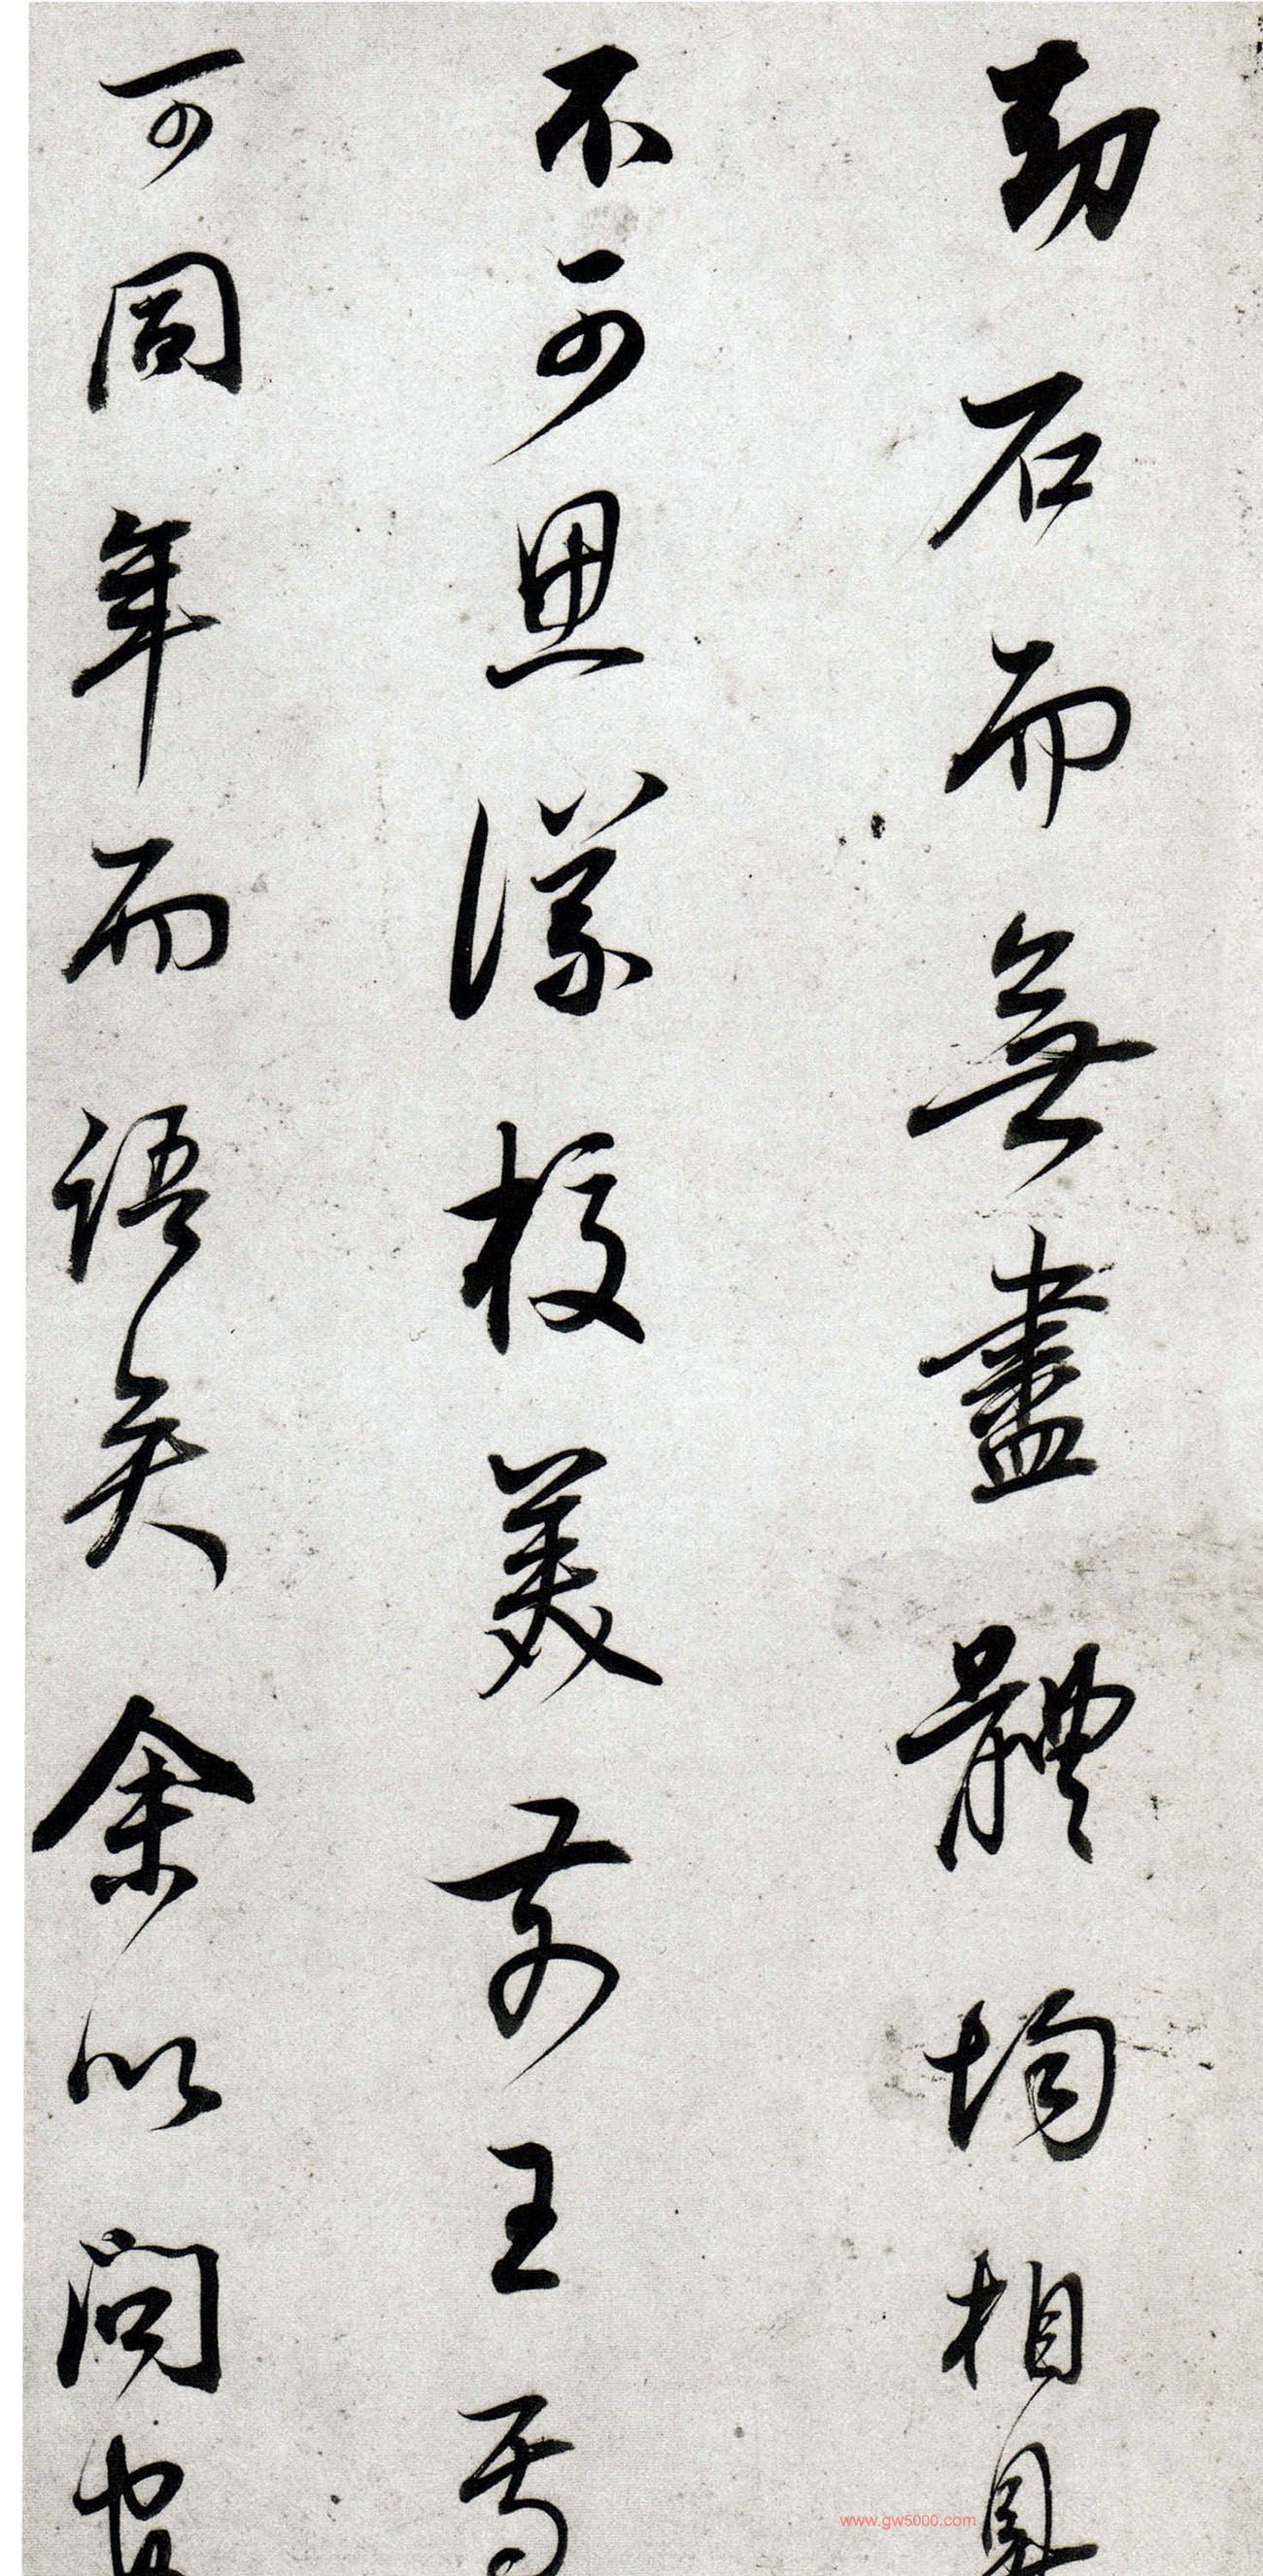 劫石而無盡體均相具
不可思議校美前王焉
可同年而語矣余以問
www.gw5000.com